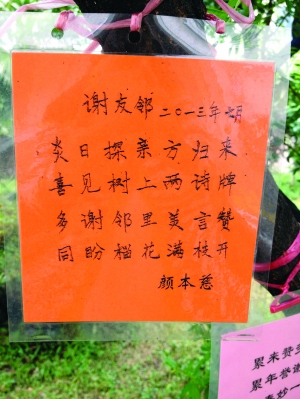 谢友邻 二〇一三年七月
炎日探亲方归来
喜见树上两诗牌
多谢邻里美言赞
同盼榴花满枝开
颜本慈
累来赞
累年誉